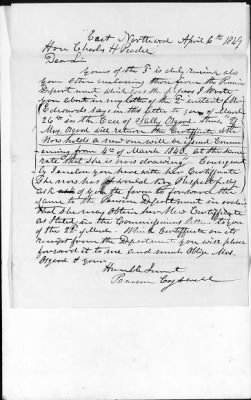 East Northwood April 6th 1849
Hon Charles H Peaslee
Dear Sir
Yours of the 3d is duly received also
your store enclosing them from the Pension
Department which was the place I wrote
you about in my letter of the 2d instant
Edwards says in his letter to you of March
26th in the Case of Sally Osgood that "If
Mrs Osgood will return the Certificate she
Now holds a new one will be issued Commen
cing from 4th of March 1848, at the same
rate that she is now drawing" Consequent
ly I enclose you here with her Certificate
She now has & would Very Respectfully
ask of you the favor to forward the
same to the Pension Department in order
that she may obtain her New Certificate
as stated in the Commissioners letter to you
of the 22d of March. When the Certificate on its
return from the Department you will please
forward it to me and much Oblige Mrs
Osgood & yours
Humble Servant
Pearson Cogswell